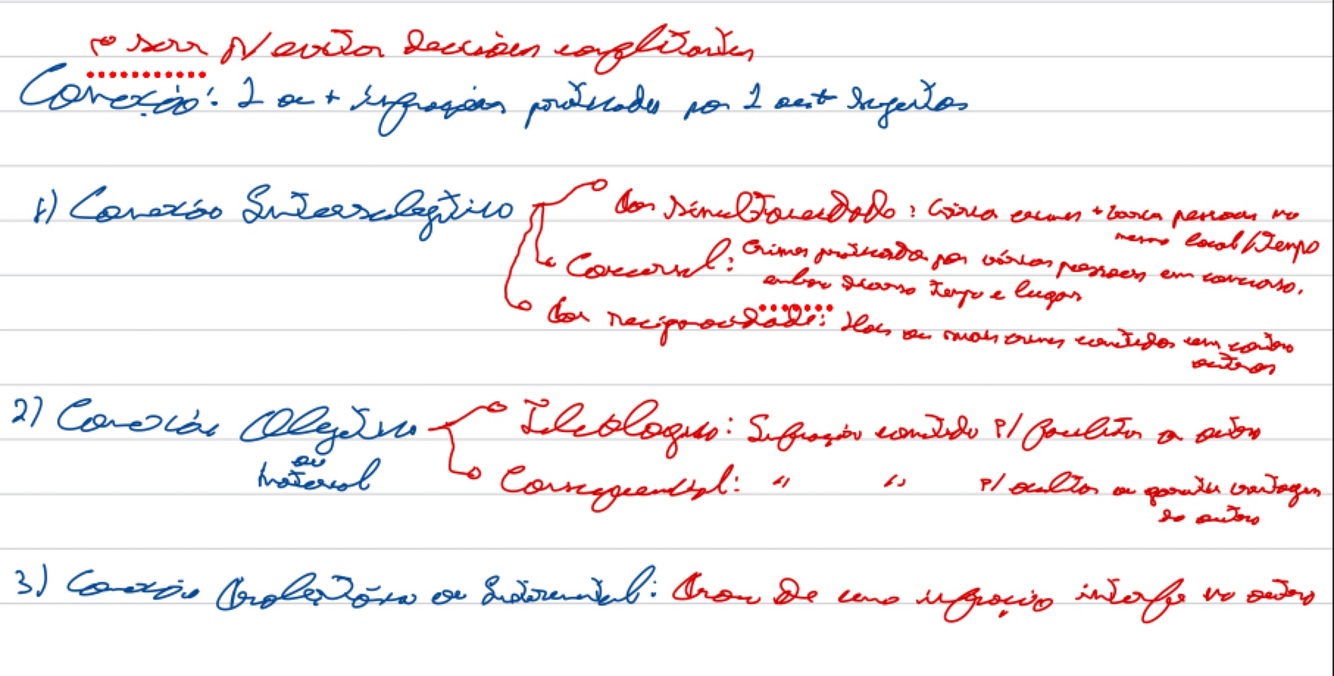 serve p/ evitar decisões conflitantes
Conexão: 2 ou + infrações praticadas por 1 ou + sujeitos
1) Conexão Intersubjetiva
Por simultaneidade: vários crimes + várias pessoas no
mesmo local/tempo
Concursal: Crimes praticados por várias pessoas em concurso,
embora diverso tempo e lugar
Por reciprocidade: Dois ou mais crimes cometidos uns contra
outros
2) Conexão Objetiva
ou
material
Teleológica: Infração cometida p/ facilitar a outra
Consequencial: " " p/ ocultar ou garantir vantagem
da outra
3) Conexão Probatória ou Instrumental: Prova de uma infração interfe na outra